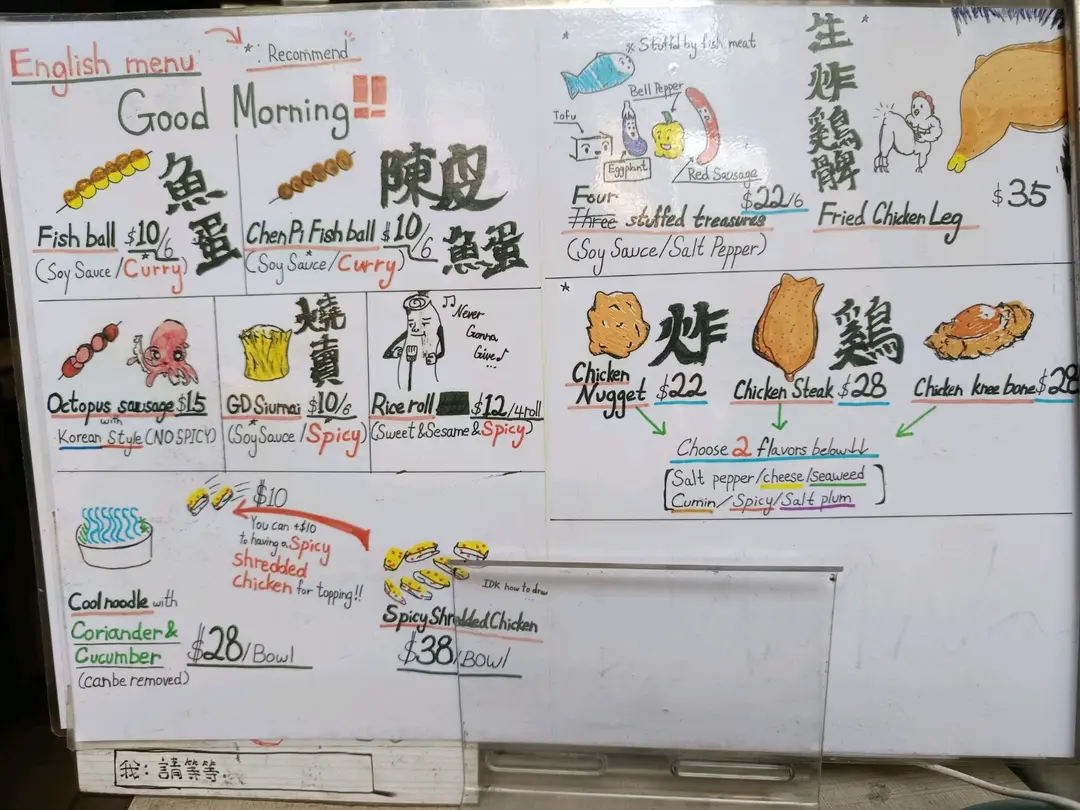 English menu
*: Recommend
Good Morning!!
魚蛋
Fish ball $10/6
(Soy Sauce/Curry)
陳皮
魚蛋
Chen Pi Fish ball $10/6
(Soy Sauce/Curry)
Octopus sausage $15
with
Korean Style (NO SPICY)
燒賣
GD Siumai $10/6
(Soy Sauce/Spicy)
♫ Never
Gonna
Give♪
Rice roll $12/4roll
(Sweet & Sesame & Spicy)
$10
You can +$10
to having a Spicy
Shredded
Chicken for topping!!
Cool noodle with
Coriander &
Cucumber
(can be removed)
$28/Bowl
IDK how to draw
Spicy Shredded Chicken
$38/BOWL
*
※ Stuffd by fish meat
Bell Pepper
Tofu
Eggplant
Red Sausage
Four
Three stuffed treasures
$22/6
(Soy Sauce/Salt Pepper)
*
生炸鷄髀
Fried Chicken Leg
$35
*
炸鷄
Chicken
Nugget $22
Chicken Steak $28
Chicken knee bone $28
Choose 2 flavors below↓↓
[Salt pepper/cheese/seaweed
Cumin/Spicy/Salt plum]
我：請等等.